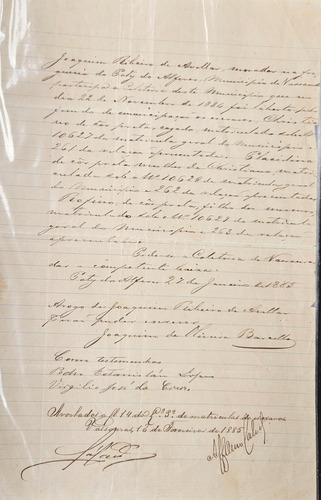 Joaquim Ribeiro de Avellar, morador na fre-
guesia do Paty do Alferes, Municipio de Vassouras
participa a Coletoria deste Municipio que no
dia 22 de Novembro de 1884 foi liberto pelo
fundo de emancipação os escravos. Christia
no de côr preta, matriculado sob o Nº
10627 da matricula geral do Municipio e
261 da relação apresentada.
de côr preta mulher de Christiano matri
culada sob o Nº 10628 da matricula geral
do Municipio e 262 da relação apresentada
de côr preta, filho do mesmo,
matriculado sob o Nº 10629 da matricula
geral do Municipio e 263 da relação
apresentada.
Pede-se a Coletoria de Vassouras
dar a competente baixa
Paty do Alferes 27 de Janeiro de 1885
A rogo de Joaquim Ribeiro de Avellar
por não poder escrever
Joaquim de
Como testemunhas
Pedro Estanislau Lopes
Virgilio José da Cruz
Averbado a fl 14 do Lº 3º de matriculas de escravos
Vassouras, de Janeiro de 1885